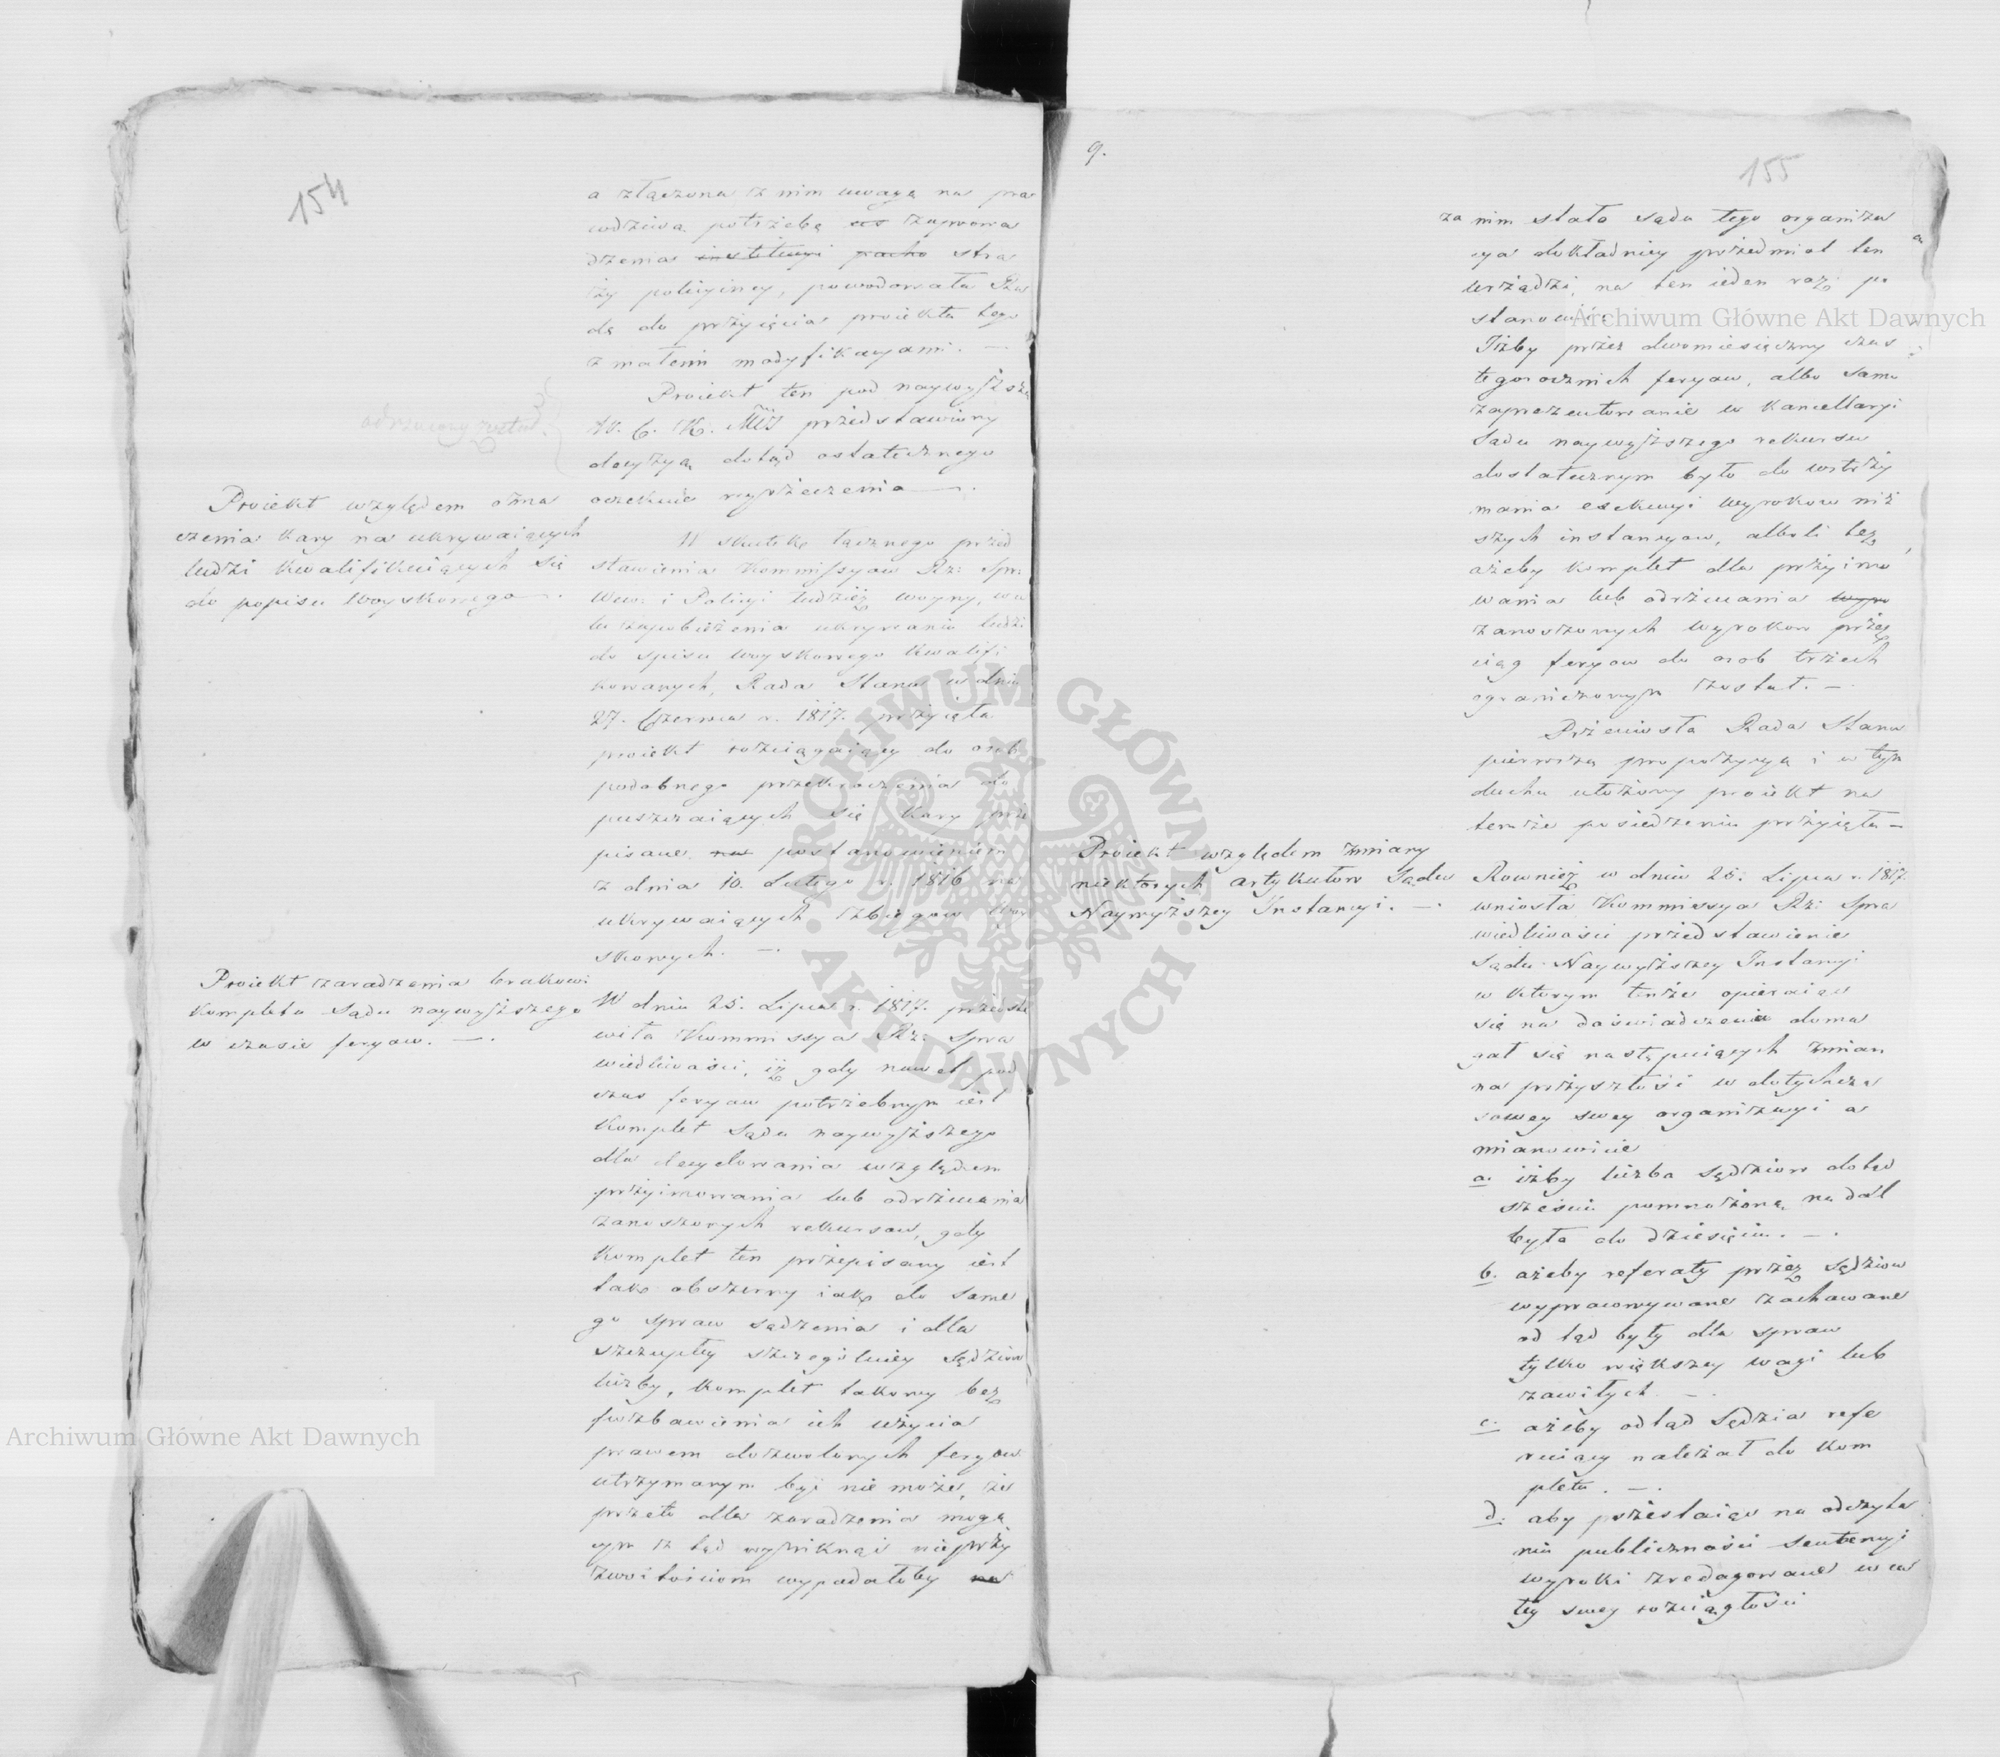 154
a złączona z nim uwaga na pra
wdziwą potrzebę zaprowa
dzenia instytucyi stra
ży policyiney, powodowała Ra
dę do przyięcia proiektu tego
z małemi modyfikacyami. —
Proiekt ten pod naywyższą
W. C. K. Mci przedstawiony
decyzyą dotąd ostatecznego
oczekuie wyrzeczenia —.
odrzucony został
Proiekt względem ozna
czenia kary na ukrywaiących
ludzi kwalifikuiących się
do popisu woyskowego —.
W skutek łącznego przed
stawienia Kommissyow Rz: Spr:
Wew: i Policyi tudzież woyny, w ce
lu zapobieżenia ukrywaniu ludzi
do spisu woyskowego kwalifi
kowanych, Rada Stanu w dniu
27. Czerwca r. 1817. przyięła
proiekt rozciągaiący do osób
podobnego przekroczenia do
puszczaiących się kary prze
pisane na postanowieniem
z dnia 10. Lutego r. 1816 na
ukrywaiących zbiegow woy
skowych. —
Proiekt zaradzenia brakowi
kompletu Sądu naywyższego
w czasie feryow. —.
W dniu 25. Lipca r. 1817. przedsta
wiła Kommissya Rz: Spra
wiedliwości, iż gdy nawet pod
czas feryow potrzebnym iest
komplet Sądu naywyższego
dla decydowania względem
przyimowania lub odrzucania
zanoszonych rekursow, gdy
komplet ten przepisany iest
tak obszerny iak do same
go spraw sądzenia i dla
szczupłey szczegolniey Sędziow
liczby, komplet takowy bez
pozbawienia ich użycia
prawem dozwolonych feryow
utrzymanym być nie może, że
przeto dla zaradzenia mogą
cym z tąd wyniknąć nieprzy
zwoitościom wypadałoby na
9.
155
za nim stała Sądu tego organiza
cya dokładniey przedmiot ten
urządzi, na ten ieden raz po
stanowić
Iżby przez dwumiesięczny czas
tegorocznich feryow, albo samo
zaprezentowanie w Kancellaryi
Sądu naywyższego rekursu
dostatecznym było do wstrzy
mania exekucyi wyrokow niż
szych instancyow, alboli też,
ażeby komplet dla przyimo
wania lub odrzucania wyro
zanoszonych wyrokow przez
ciąg feryow do osob trzech
ograniczonym został. —
Przeniosła Rada Stanu
pierwszą propozycyą i w tym
duchu ułożony proiekt na
temże posiedzeniu przyięła —
Proiekt względem zmiany
niektorych artykułow Sądu
Naywyższey Instancyi. —.
Rownież w dniu 25. Lipca r. 1817.
wniosła Kommissya Rz: Spra
wiedliwości przedstawienie
Sądu Naywyższey Instancyi
w ktorym tenże opieraiąc
się na doświadczeniu doma
gał się następuiących zmian
na przyszłość w dotychcza
sowey swey organizacyi a
mianowicie
a. iżby liczba Sędziow dotąd
sześciu pomnożoną nadal
była do dziesięciu. —.
b. ażeby referaty przez Sędziow
wypracowywane zachowane
od tąd były dla spraw
tylko większey wagi lub
zawiłych. —.
c. ażeby odtąd Sędzia refe
ruiący należał do kom
pletu. —.
d. aby przestaiąc na odczyta
niu publiczności Sentencyi
wyroki zredagowane w ca
łey swey rozciągłości
Archiwum Główne Akt Dawnych
Archiwum Główne Akt Dawnych
ARCHIWUM GŁÓWNE
AKT DAWNYCH